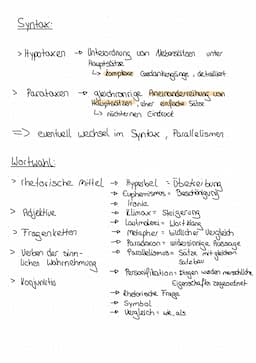 Syntax:
> Hypotaxen → Unterordnung von Nebensätzen unter
Hauptsätze
↳ komplexe Gedankengänge, detailliert
> Parataxen → gleichrangige Aneinanderreihung von
Hauptsätzen, eher einfache Sätze
↳ nüchternen Eindruck
=> eventuell wechsel im Syntax, Parallelismen
Wortwahl:
> rhetorische Mittel → Hyperbel = Übertreibung
→ Euphemismus = Beschönigung
→ Ironie
> Adjektive → Klimax = Steigerung
→ Lautmalerei = Wort Klang
> Fragenketten → Metapher = bildlicher Vergleich
→ Paradoxon = widersinnige Aussage
> Verben der sinn-
lichen Wahrnehmung → Parallelismus = Sätze mit gleichem
Satzbau
> Konjunktiv → Personifikation = Dingen werden menschliche
Eigenschaften zugeordnet
→ Rhetorische Frage
→ Symbol
→ Vergleich = wie, als